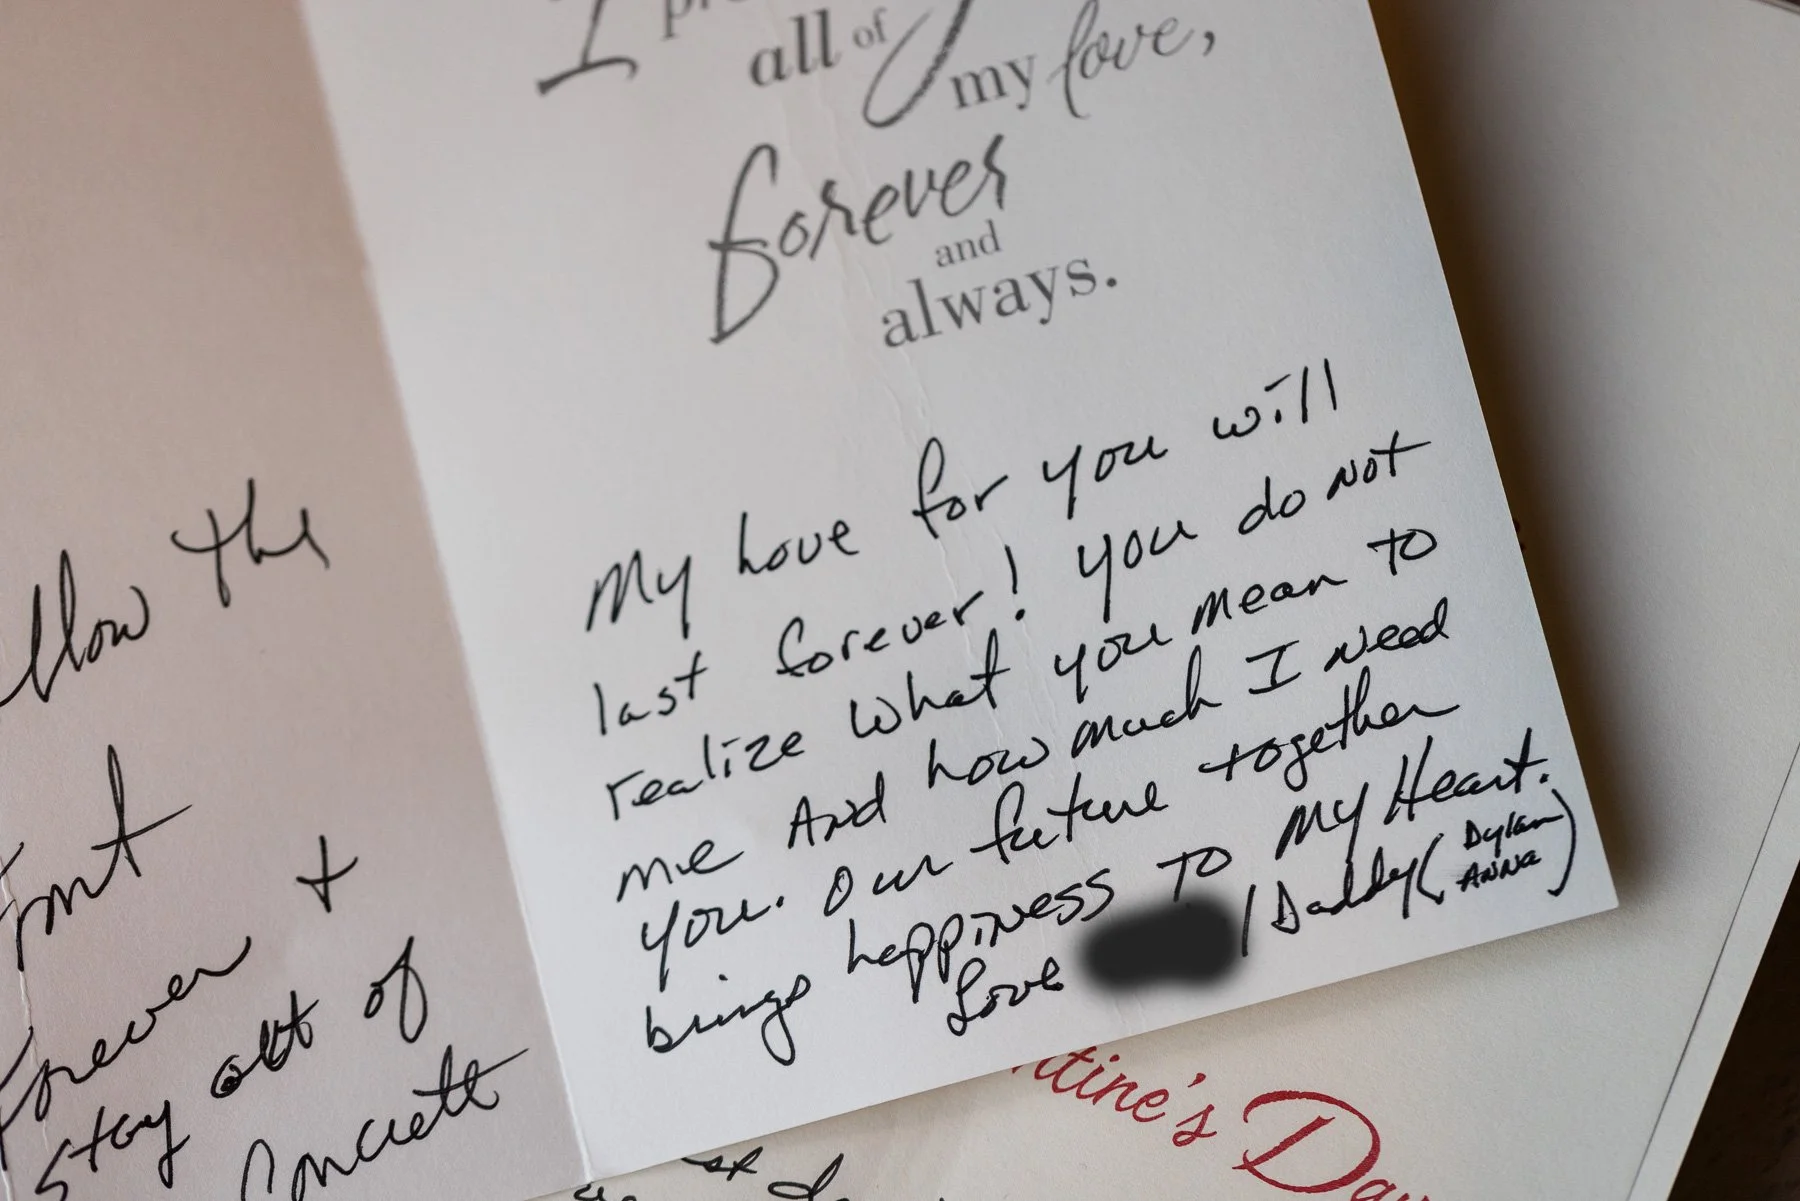 I
all of my love,
forever
and
always.
My Love for you will
last forever! you do not
realize what you mean to
me And how much I need
you. Our future together
brings happiness to My Heart.
Love /Daddy (Dylan
ANNA)
the
forever +
stay out of
ntine's Day